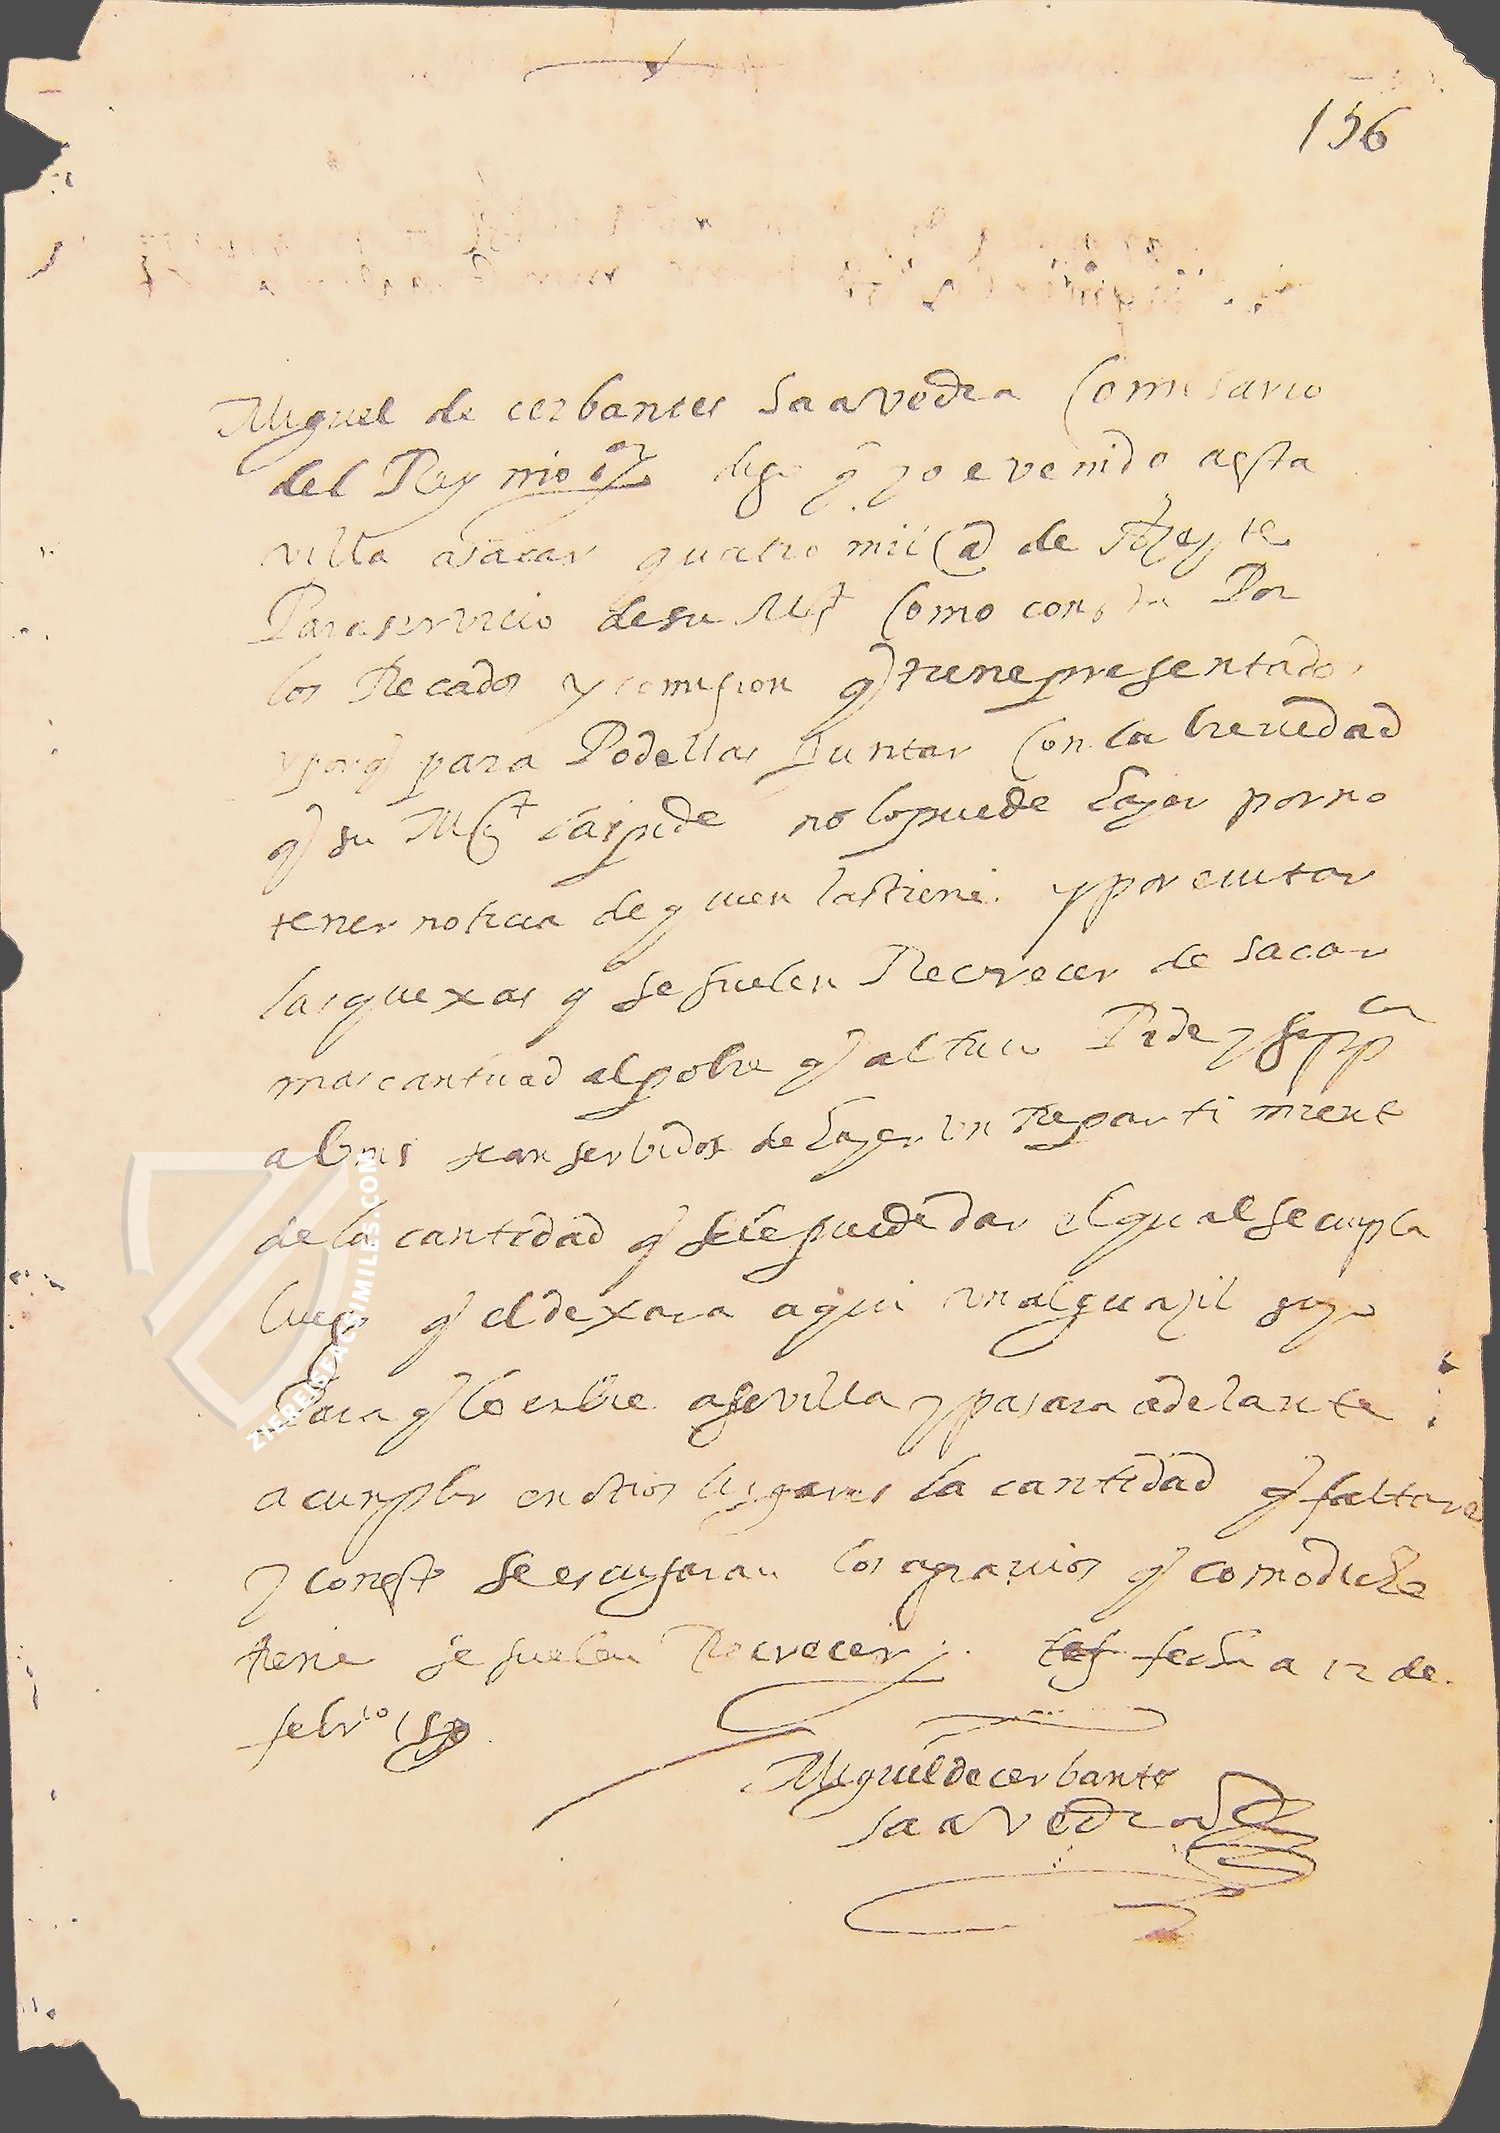 156
Miguel de cerbantes Saavedra Comisario
del Rey nro sr digo q yo e venido a esta
villa a sacar quatro mil @ de Azeyte
Para servicio de su Mgt Como consta Por
los Recados y comision q tiene presentados
y porq para Podellas Juntar Con la brevedad
q su Mgt las pide no lo puede hazer por no
tener noticia de quien las tiene. y por evitar
las quexas q se suelen Recrecer de sacar
mas cantidad al pobre q al rico Pide y suppca
a Vms sean servidos de hazer un Repartimient
de la cantidad q se le puede dar el qual se cunpla
luego q el dexara aqui un alguazil suyo
Para q lo enbie a sevilla y pasara adelante
a cunplir en otros lugares la cantidad q faltare
y con esto se escusaran los agravios q como dicho
tiene se suelen Recrecer fecha a 12 de
febro 159
Miguel de cerbantes
Saavedra
ZIEREISFACSIMILES.COM